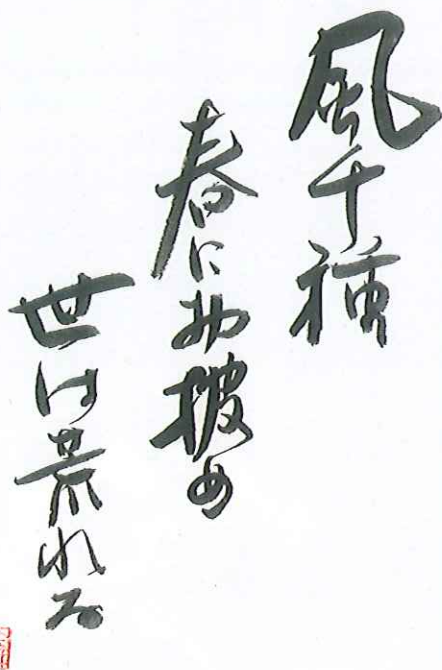 風十種
春にお披め
世は荒れる